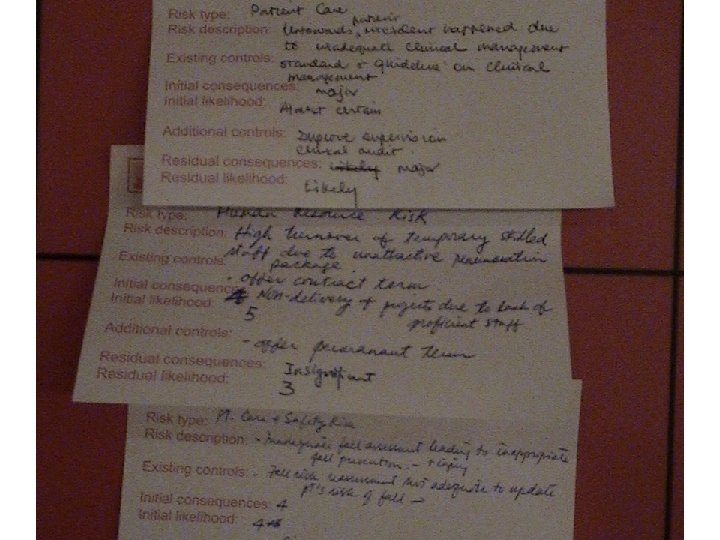 Risk type: Patient Care
patient
Risk description: Untowards, incident happened due
to inadequate clinical management
Existing controls: standard & guideline on clinical
management
Initial consequences: major
Initial likelihood: Almost certain
Additional controls: Improve supervision
clinical audit
Residual consequences: likely major
Residual likelihood: Likely
Risk type: Human Resource Risk
Risk description: High turnover of temporary skilled
staff due to unattractive remuneration
package.
Existing controls: - offer contract term
Initial consequences: Non-delivery of projects due to lack of
proficient staff
Initial likelihood: 5
Additional controls: - offer permanant term
Residual consequences: Insignificant
Residual likelihood: 3
Risk type: Pt. Care & Safety Risk
Risk description: - Inadequate fall assessment leading to inappropriate
fall prevention. -
Existing controls: - Fall risk assessment not adequate to update
pt's risk of fall -
Initial consequences: 4
Initial likelihood: 4